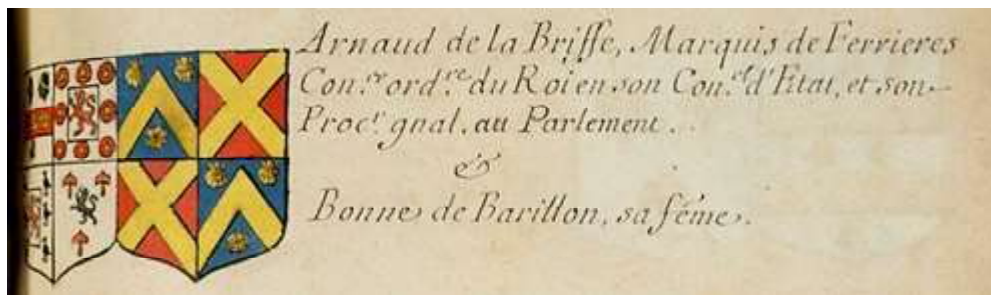 Arnaud de la Briffe, Marquis de Ferrieres
Con.er ord.re du Roi en son Con.el d'Etat, et son
Proc.r gnal. au Parlement.
&
Bonne de Barillon, sa féme.